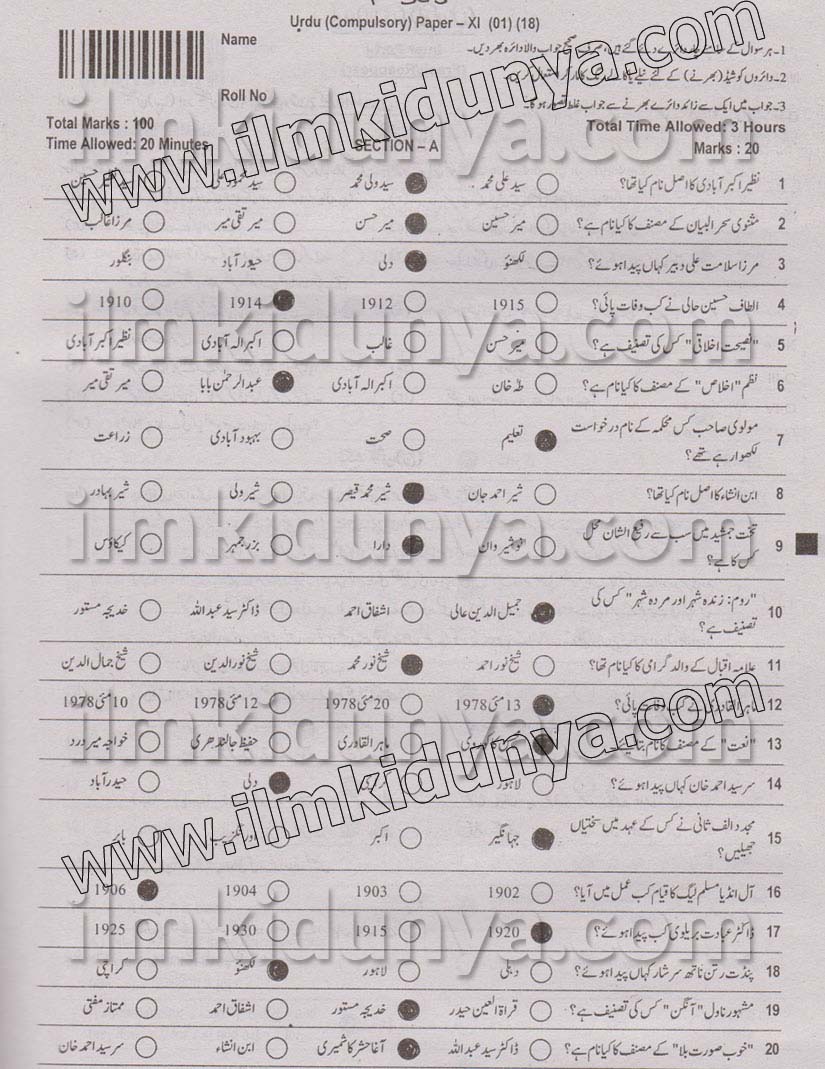 Urdu (Compulsory) Paper – XI (01) (18)
Name
1- ہر سوال کے سامنے چار دائرے دئے گئے ہیں، صرف صحیح جواب والا دائرہ بھر دیں۔
2- دائروں کو شیڈ (بھرنے) کے لئے نیلے یا
3- جواب میں ایک سے زائد دائرے بھرنے سے جواب غلط تصور ہو گا۔
Roll No
Total Marks : 100
Total Time Allowed: 3 Hours
Time Allowed: 20 Minutes
SECTION – A
Marks : 20
www.ilmkidunya.com
1 نظیر اکبر آبادی کا اصل نام کیا تھا؟ سید علی محمد سید ولی محمد سید محمود علی
2 مثنوی سحر البیان کے مصنف کا کیا نام ہے؟ میر حسین میر حسن میر تقی میر مرزا غالب
3 مرزا سلامت علی دبیر کہاں پیدا ہوئے؟ لکھنؤ دلی حیدر آباد بنگلور
4 الطاف حسین حالی نے کب وفات پائی؟ 1915 1912 1914 1910
5 "نصیحت اخلاقی" کس کی تصنیف ہے؟ میر حسن غالب اکبر الہ آبادی نظیر اکبر آبادی
6 نظم "اخلاص" کے مصنف کا کیا نام ہے؟ طٰہٰ خان اکبر الہ آبادی عبدالرحمٰن بابا میر تقی میر
7 مولوی صاحب کس محکمہ کے نام درخواست لکھوا رہے تھے؟ تعلیم صحت بہبود آبادی زراعت
8 ابن انشاء کا اصل نام کیا تھا؟ شیر احمد جان شیر محمد قیصر شیر ولی شیر بہادر
9 تخت جمشید میں سب سے رفیع الشان محل کس کا ہے؟ نوشیروان دارا بزرجمہر کیکاؤس
10 "روم: زندہ شہر اور مردہ شہر" کس کی تصنیف ہے؟ جمیل الدین عالی اشفاق احمد ڈاکٹر سید عبداللہ خدیجہ مستور
11 علامہ اقبال کے والد گرامی کا کیا نام تھا؟ شیخ نور احمد شیخ نور محمد شیخ نور الدین شیخ جمال الدین
12 ماہر القادری نے کب وفات پائی؟ 13 مئی 1978 20 مئی 1978 12 مئی 1978 10 مئی 1978
13 "نعت" کے مصنف کا نام بتائیں ماہر القادری حفیظ جالندھری خواجہ میر درد
14 سر سید احمد خان کہاں پیدا ہوئے؟ لاہور دلی حیدر آباد
15 مجدد الف ثانی نے کس کے عہد میں سختیاں جھیلیں؟ جہانگیر اکبر اورنگزیب بابر
16 آل انڈیا مسلم لیگ کا قیام کب عمل میں آیا؟ 1902 1903 1904 1906
17 ڈاکٹر عبادت بریلوی کب پیدا ہوئے؟ 1920 1915 1930 1925
18 پنڈت رتن ناتھ سرشار کہاں پیدا ہوئے؟ دہلی لاہور لکھنؤ کراچی
19 مشہور ناول "آنگن" کس کی تصنیف ہے؟ قراۃ العین حیدر خدیجہ مستور اشفاق احمد ممتاز مفتی
20 "خوب صورت بلا" کے مصنف کا کیا نام ہے؟ ڈاکٹر سید عبداللہ آغا حشر کاشمیری ابن انشاء سر سید احمد خان
www.ilmkidunya.com